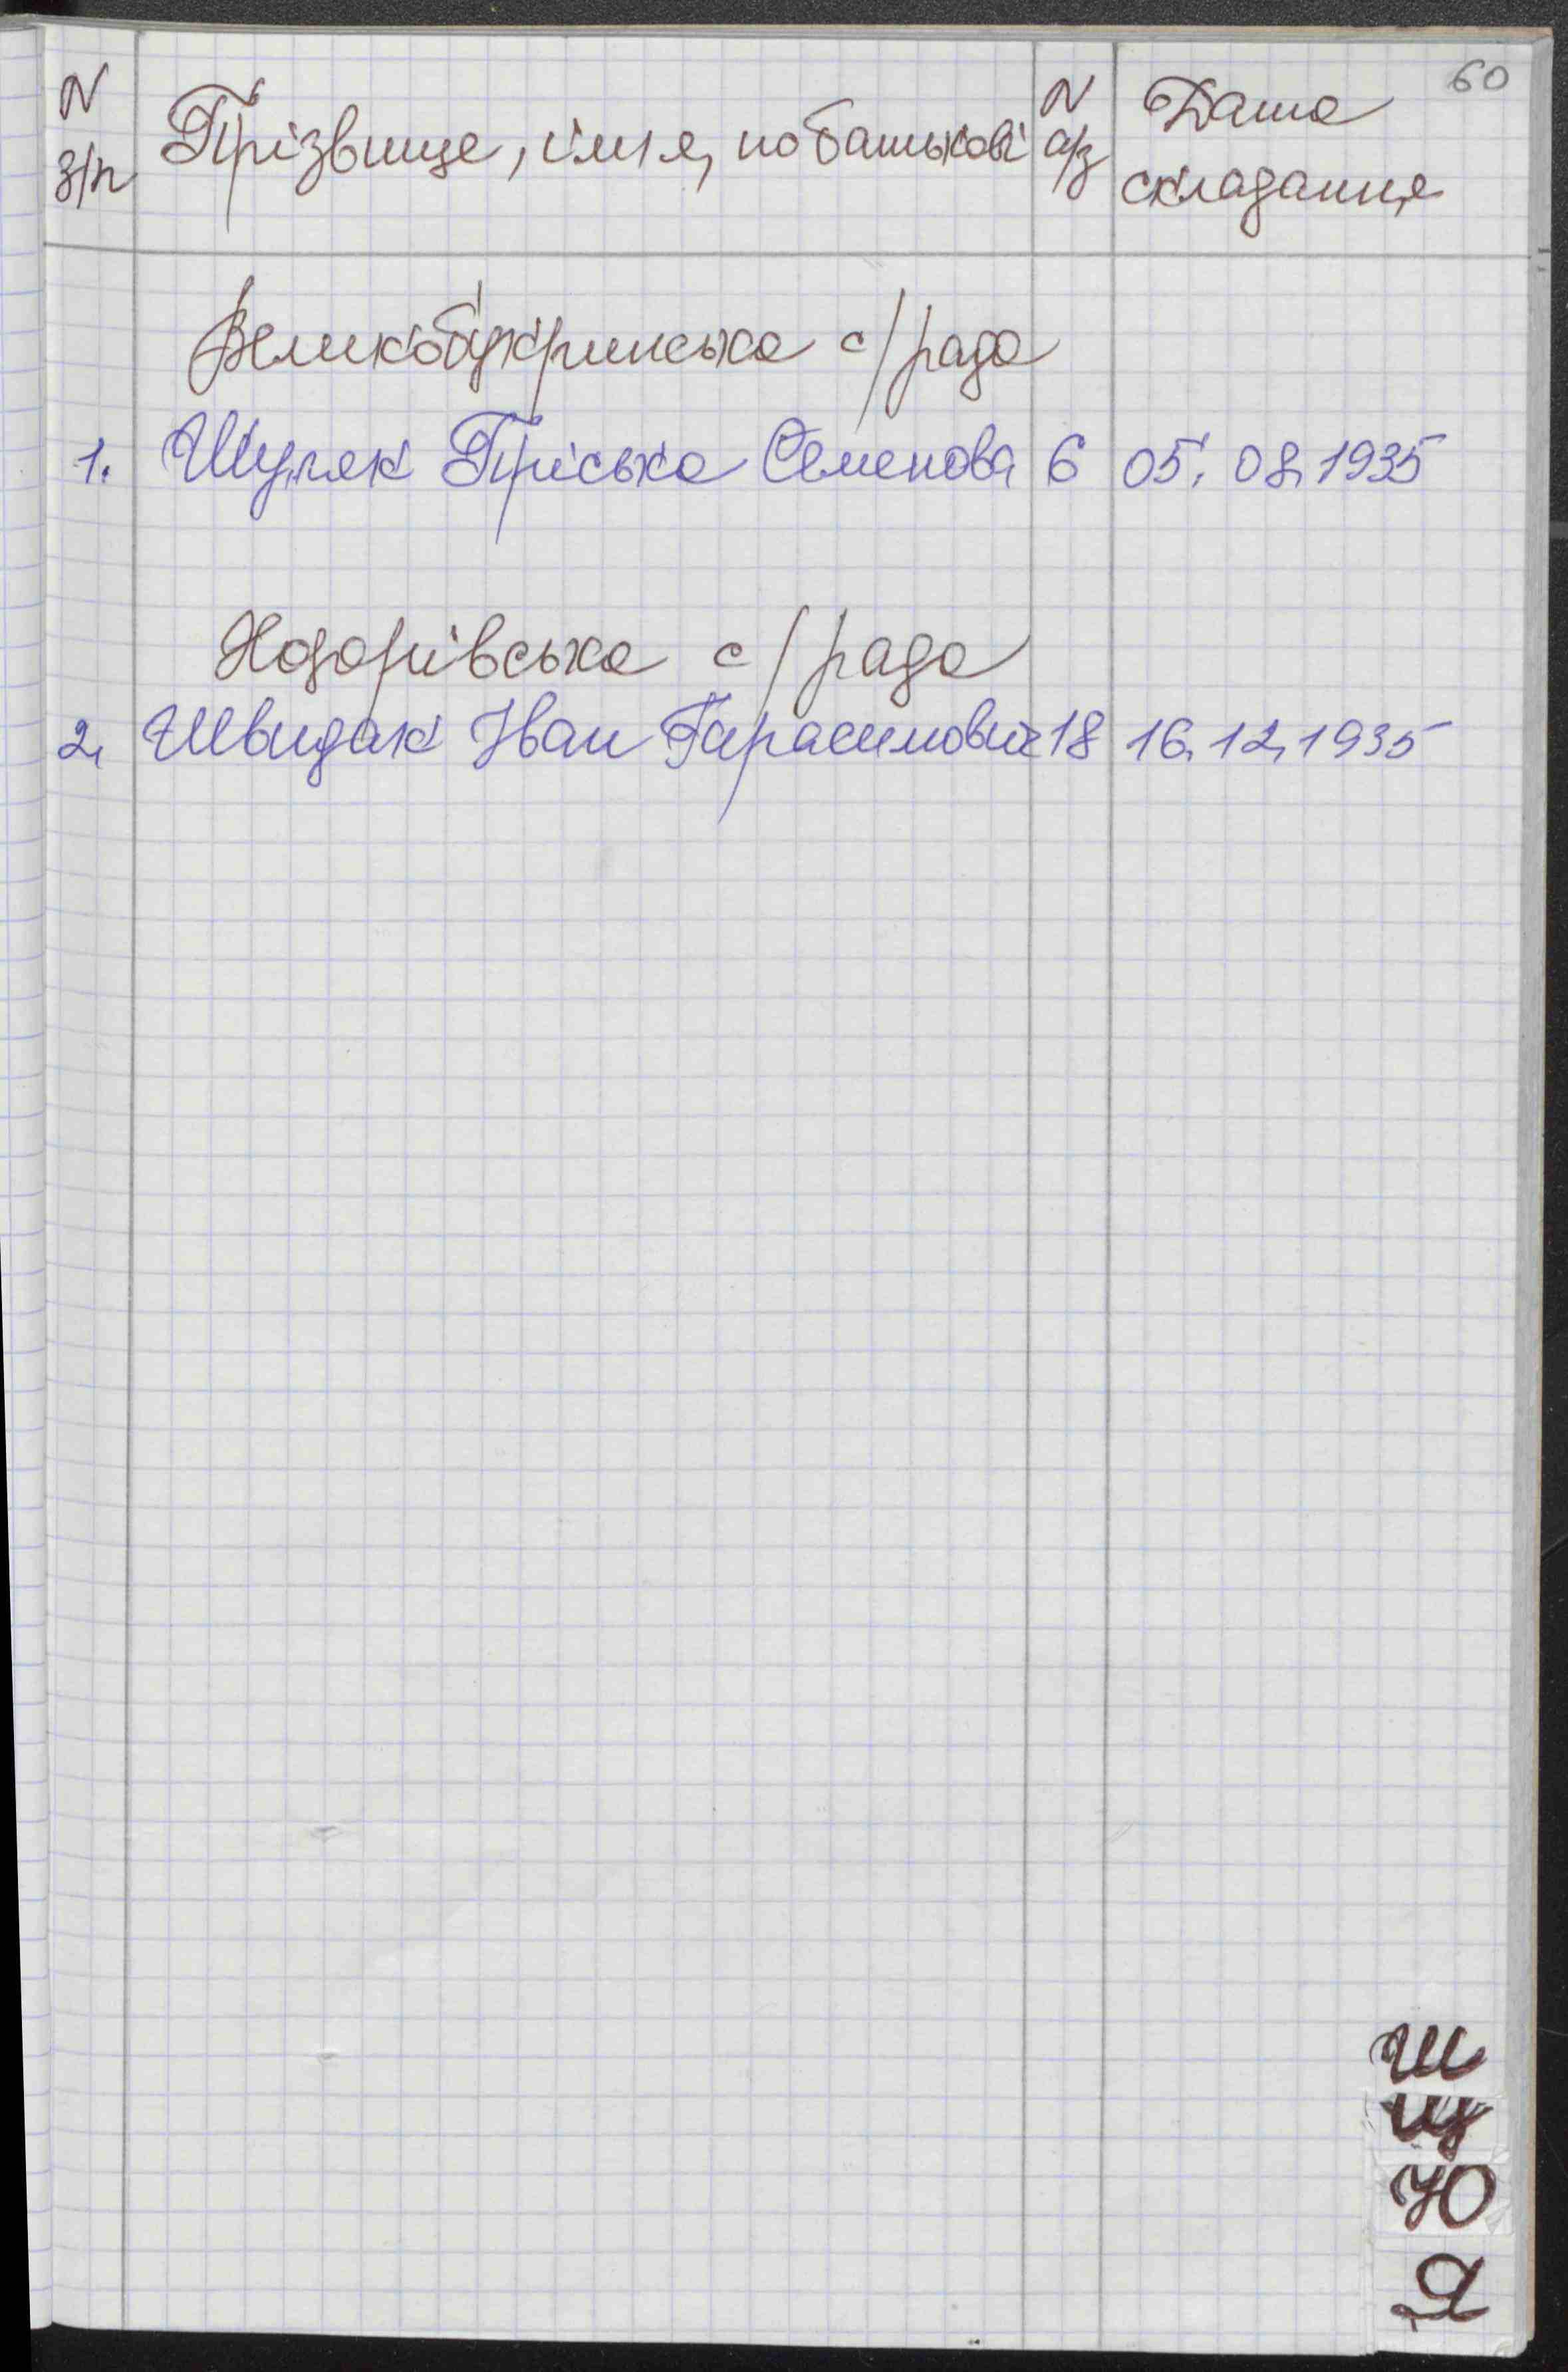 60
N з/п Прізвище, ім'я, по батькові N а/з Дата складання
Великобукринська с/рада
1. Шуляк Пріська Семенова 6 05.08.1935
Ходорівська с/рада
2. Швидак Іван Гарасимович 18 16.12.1935
Ш
Щ
Ю
Я